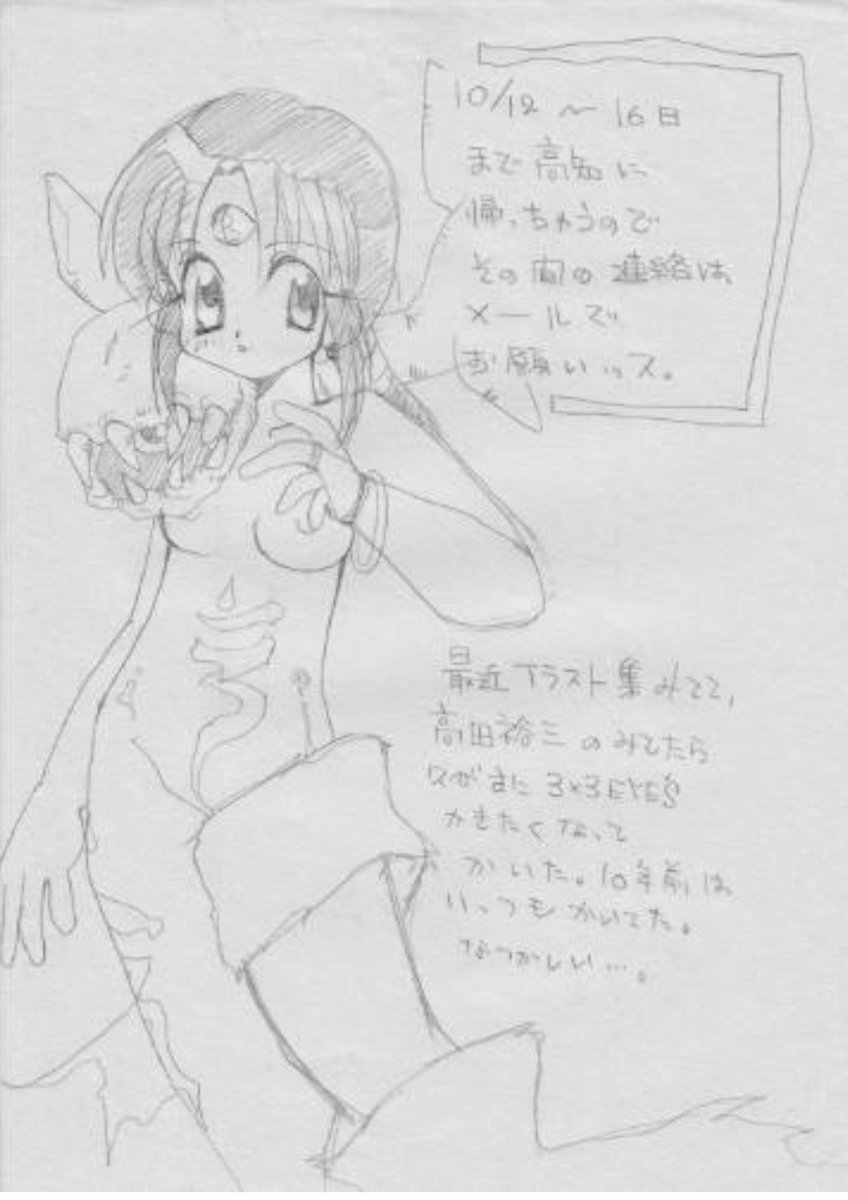 10/12 〜 16日
まで 高知に
帰っちゃうので
その間の連絡は
メールで
お願いッス。
最近 イラスト集みてて、
高田裕三のみてたら
ムがまに 3×3EYES
かきたくなって
かいた。10年前は
いっつもかいてた。
なつかしい…。